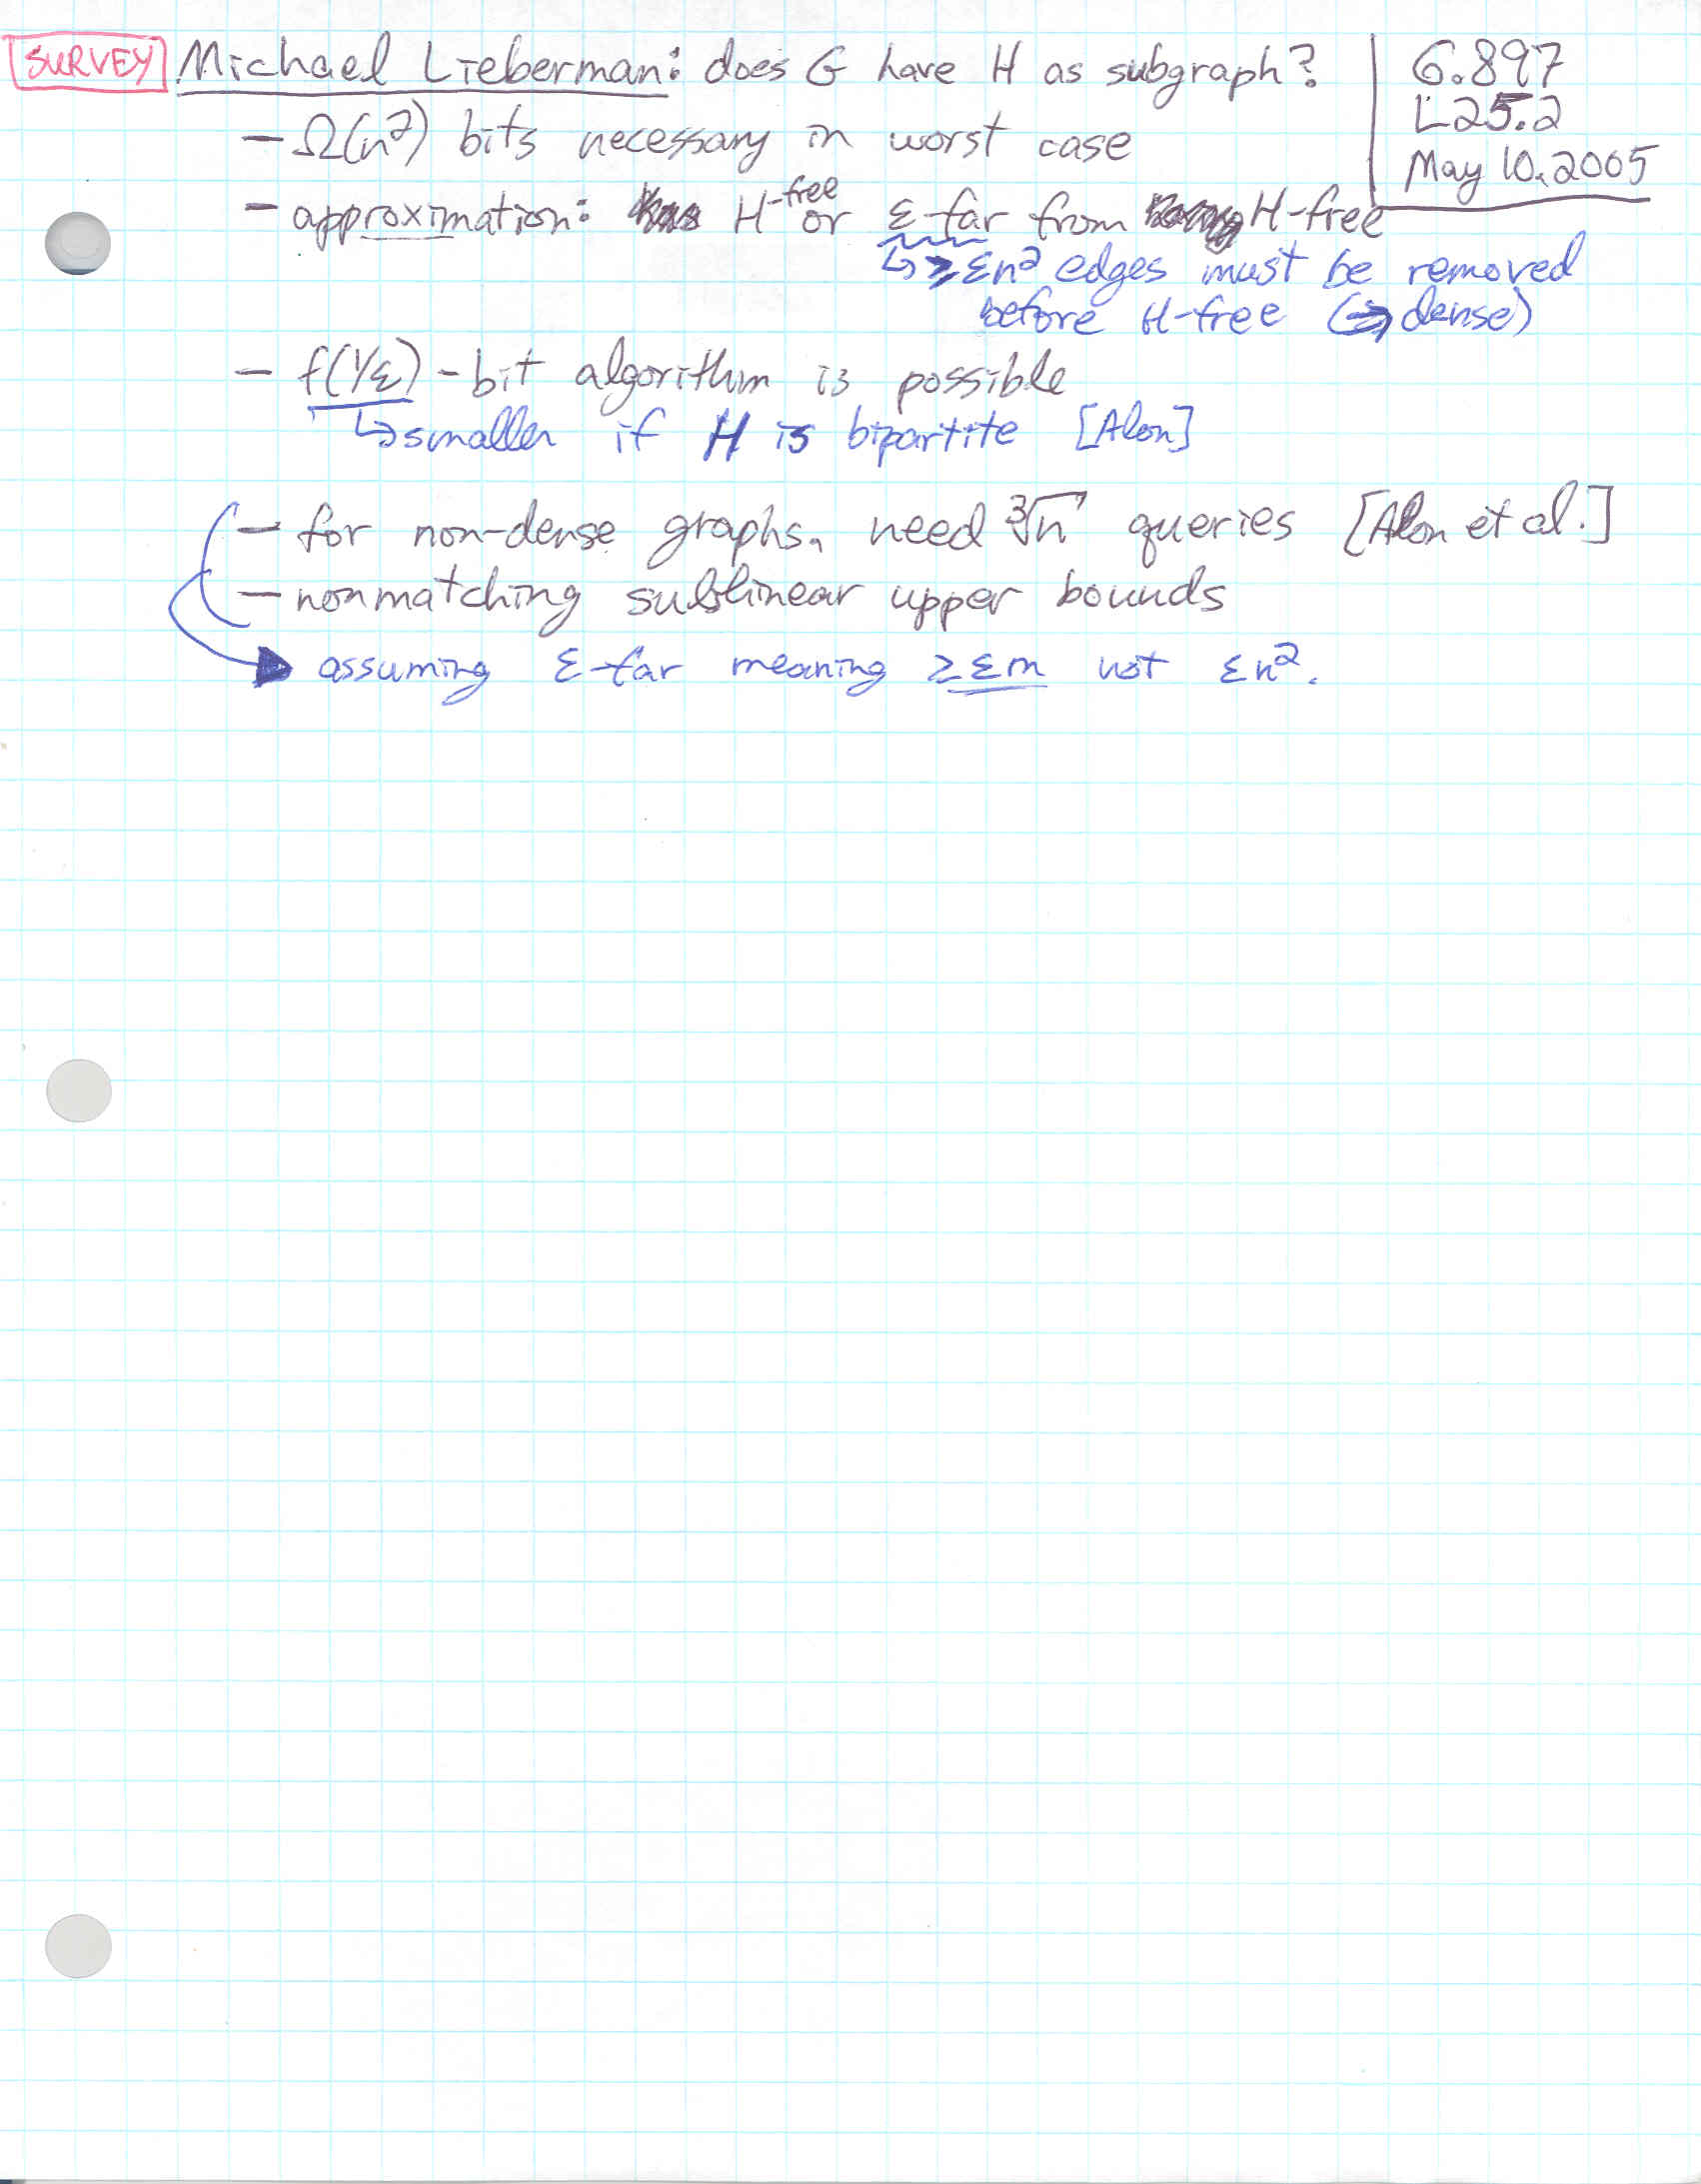 SURVEY Michael Lieberman: does G have H as subgraph?
6.897
L25.2
May 10, 2005
- Ω(n²) bits necessary in worst case
- approximation: H-free or ε-far from H-free
↳ ≥ εn² edges must be removed
before H-free (⇒ dense)
- f(1/ε)-bit algorithm is possible
↳ smaller if H is bipartite [Alon]
- for non-dense graphs, need ∛n queries [Alon et al.]
- nonmatching sublinear upper bounds
assuming ε-far meaning ≥ εm not εn².